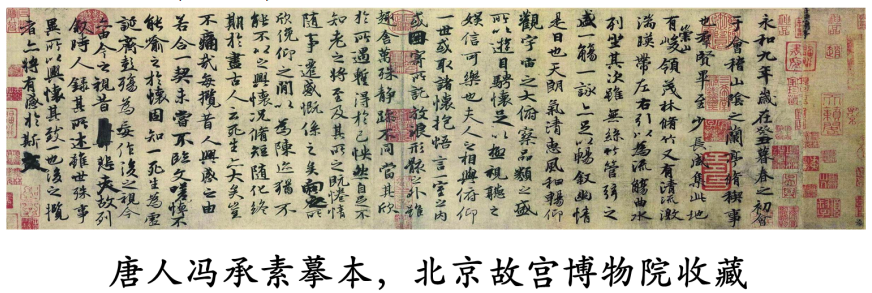 永和九年歲在癸丑暮春之初會
于會稽山陰之蘭亭脩稧事
也羣賢畢至少長咸集此地
有崇山峻領茂林脩竹又有清流激
湍暎帶左右引以為流觴曲水
列坐其次雖無絲竹管弦之
盛一觴一詠亦足以暢叙幽情
是日也天朗氣清惠風和暢仰
觀宇宙之大俯察品類之盛
所以遊目騁懷足以極視聽之
娛信可樂也夫人之相與俯仰
一世或取諸懷抱悟言一室之內
或因寄所託放浪形骸之外雖
趣舍萬殊靜躁不同當其欣
於所遇蹔得於己怏然自足不
知老之將至及其所之既惓情
隨事遷感慨係之矣向之所
欣俛仰之間以為陳迹猶不
能不以之興懷況脩短隨化終
期於盡古人云死生亦大矣豈
不痛哉每攬昔人興感之由
若合一契未嘗不臨文嗟悼不
能喻之於懷固知一死生為虛
誕齊彭殤為妄作後之視今
亦由今之視昔悲夫故列
叙時人錄其所述雖世殊事
異所以興懷其致一也後之攬
者亦將有感於斯文
唐人冯承素摹本，北京故宫博物院收藏